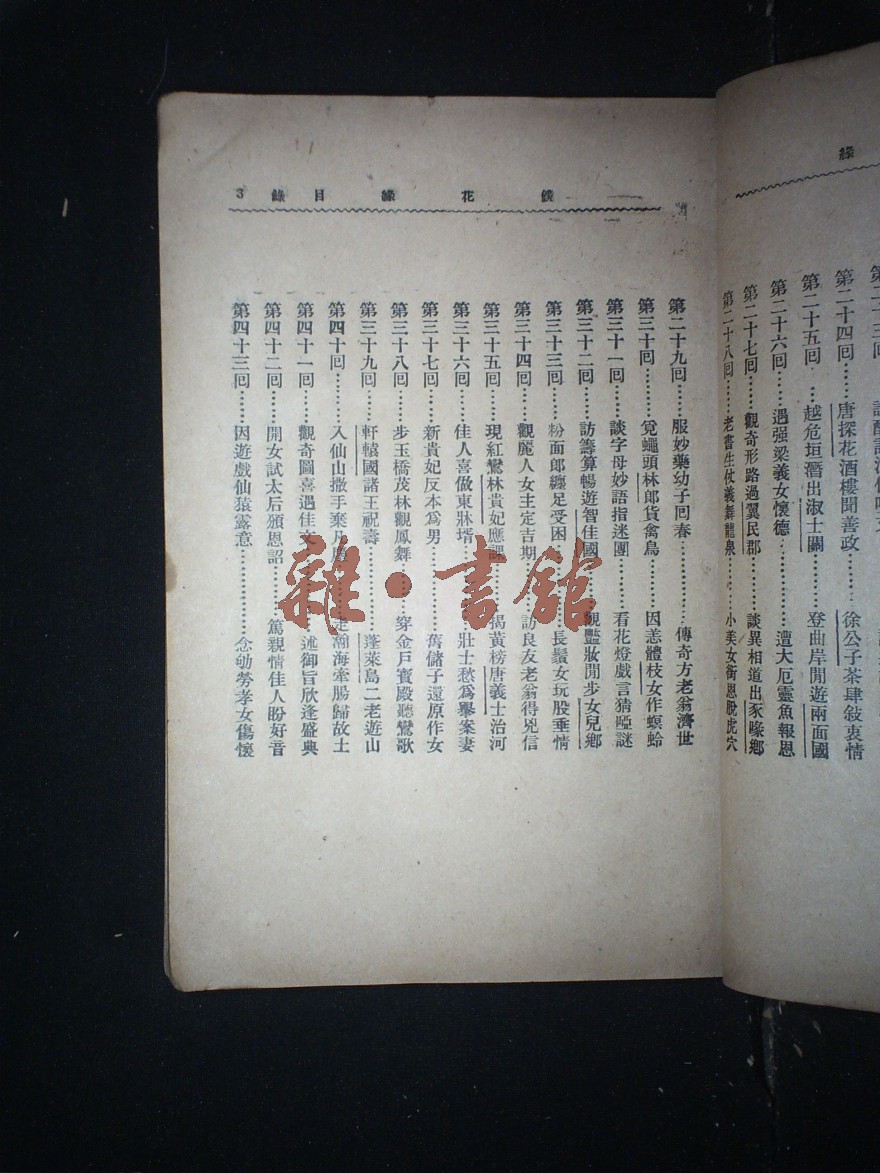 緣
第二十四回……唐探花酒樓聞善政……徐公子茶肆敍衷情
第二十五回…越危垣潛出淑士關……登曲岸閒遊兩面國
第二十六回……遇强梁義女懷德……遭大厄靈魚報恩
第二十七回……觀奇形路過翼民郡……談異相道出豕喙鄉
第二十八回……老書生仗義舞龍泉……小美女銜恩脫虎穴
鏡花緣目錄 3
第二十九回……服妙藥幼子回春……傳奇方老翁濟世
第三十回……覓蠅頭林郎貨禽鳥……因恙體枝女作螟蛉
第三十一回……談字母妙語指迷團……看花燈戲言猜啞謎
第三十二回……訪籌算暢遊智佳國……觀豔妝閒步女兒鄉
第三十三回……粉面郎纏足受困……長鬚女玩股垂情
第三十四回……觀麗人女主定吉期……訪良友老翁得兇信
第三十五回……現紅鸞林貴妃應課……揭黃榜唐義士治河
第三十六回……佳人喜做東牀壻……壯士愁爲舉案妻
第三十七回……新貴妃反本爲男……舊儲子還原作女
第三十八回……步玉橋茂林觀鳳舞……穿金戶寶殿聽鸞歌
第三十九回……軒轅國諸王祝壽……蓬萊島二老遊山
第四十回……入仙山撒手棄凡……走瀚海牽腸歸故土
第四十一回……觀奇圖喜遇佳……述御旨欣逢盛典
第四十二回……開女試太后頒恩詔……篤親情佳人盼好音
第四十三回……因遊戲仙猿露意……念劬勞孝女傷懷
雜·書館